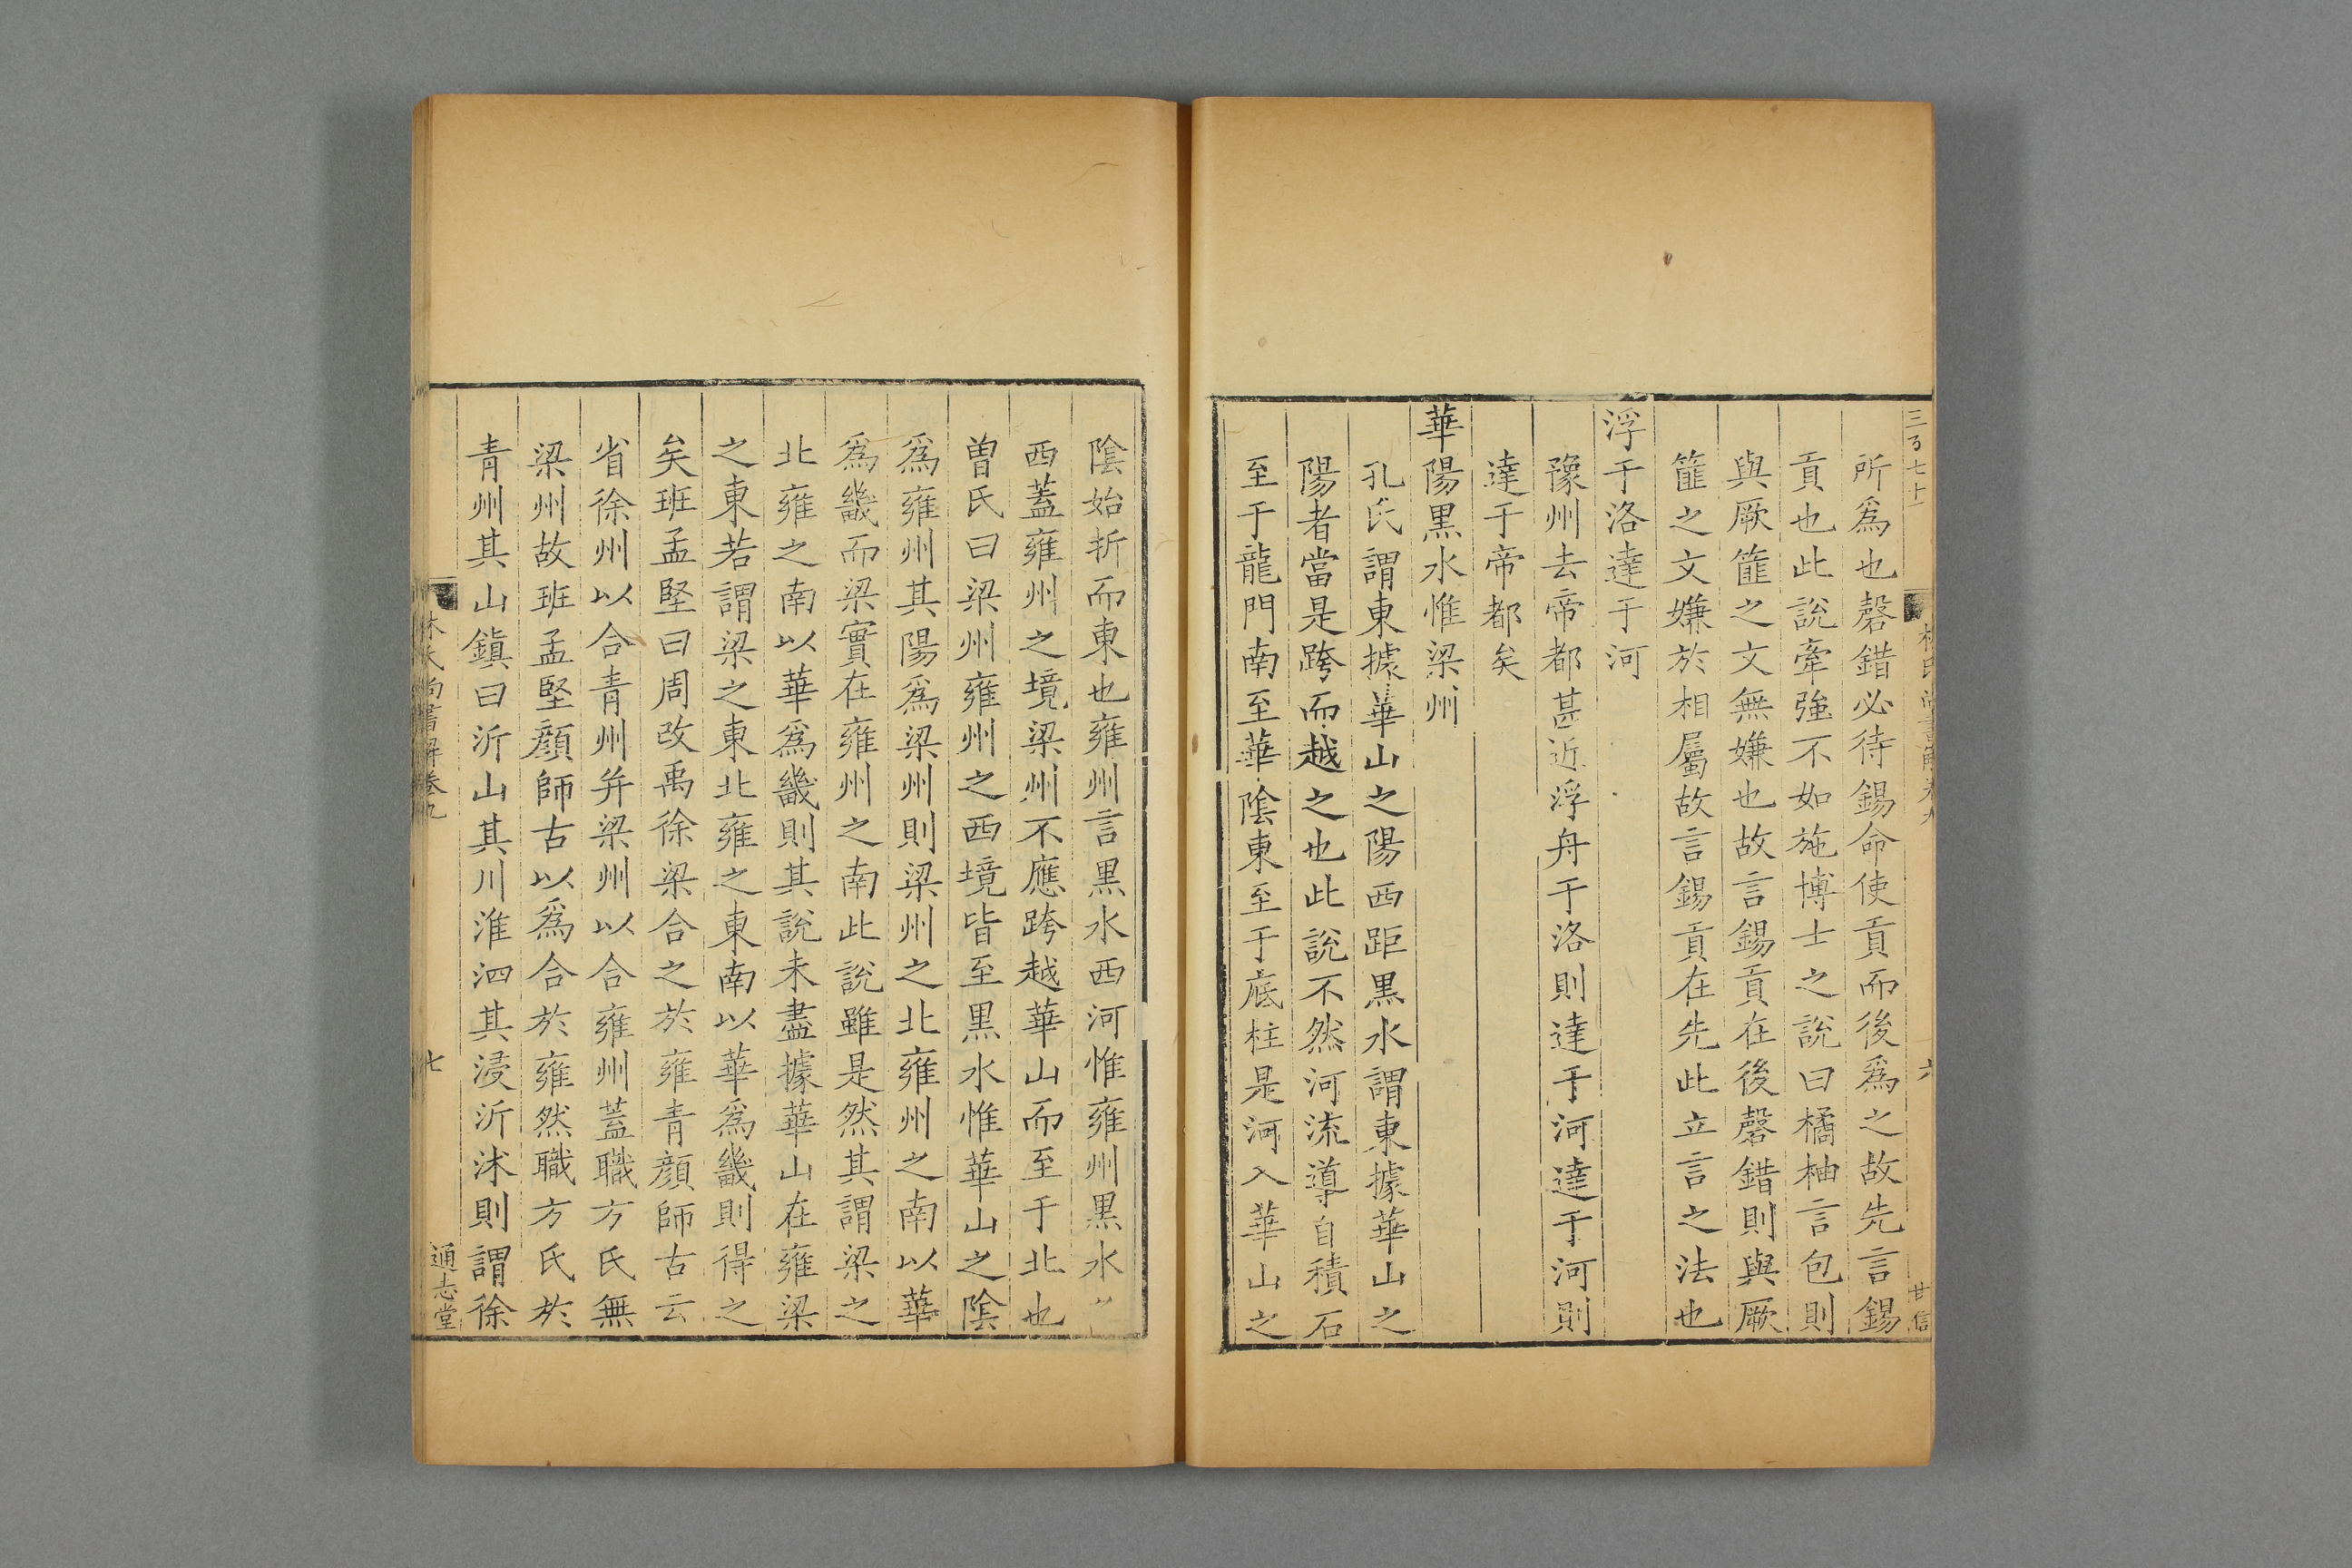 三百七十
所爲也磬錯必待錫命使貢而後爲之故先言錫
貢也此說牽強不如施博士之說曰橘柚言包則
與厥篚之文無嫌也故言錫貢在後磬錯則與厥
篚之文嫌於相屬故言錫貢在先此立言之法也
浮于洛達于河
豫州去帝都甚近浮舟于洛則達于河達于河則
達于帝都矣
華陽黒水惟梁州
孔氏謂東據華山之陽西距黒水謂東據華山之
陽者當是跨而越之也此說不然河流導自積石
至于龍門南至華陰東至于底柱是河入華山之
陰始折而東也雍州言黒水西河惟雍州黒水
西蓋雍州之境梁州不應跨越華山而至于北也
曽氏曰梁州雍州之西境皆至黒水惟華山之陰
爲雍州其陽爲梁州則梁州之北雍州之南以華
爲畿而梁實在雍州之南此說雖是然其謂梁之
北雍之南以華爲畿則其說未盡據華山在雍梁
之東若謂梁之東北雍之東南以華爲畿則得之
矣班孟堅曰周改禹徐梁合之於雍青顔師古云
省徐州以合青州并梁州以合雍州蓋職方氏無
梁州故班孟堅顔師古以爲合於雍然職方氏於
青州其山鎭曰沂山其川淮泗其浸沂沭則謂徐
林氏尚書解卷九
七
通志堂